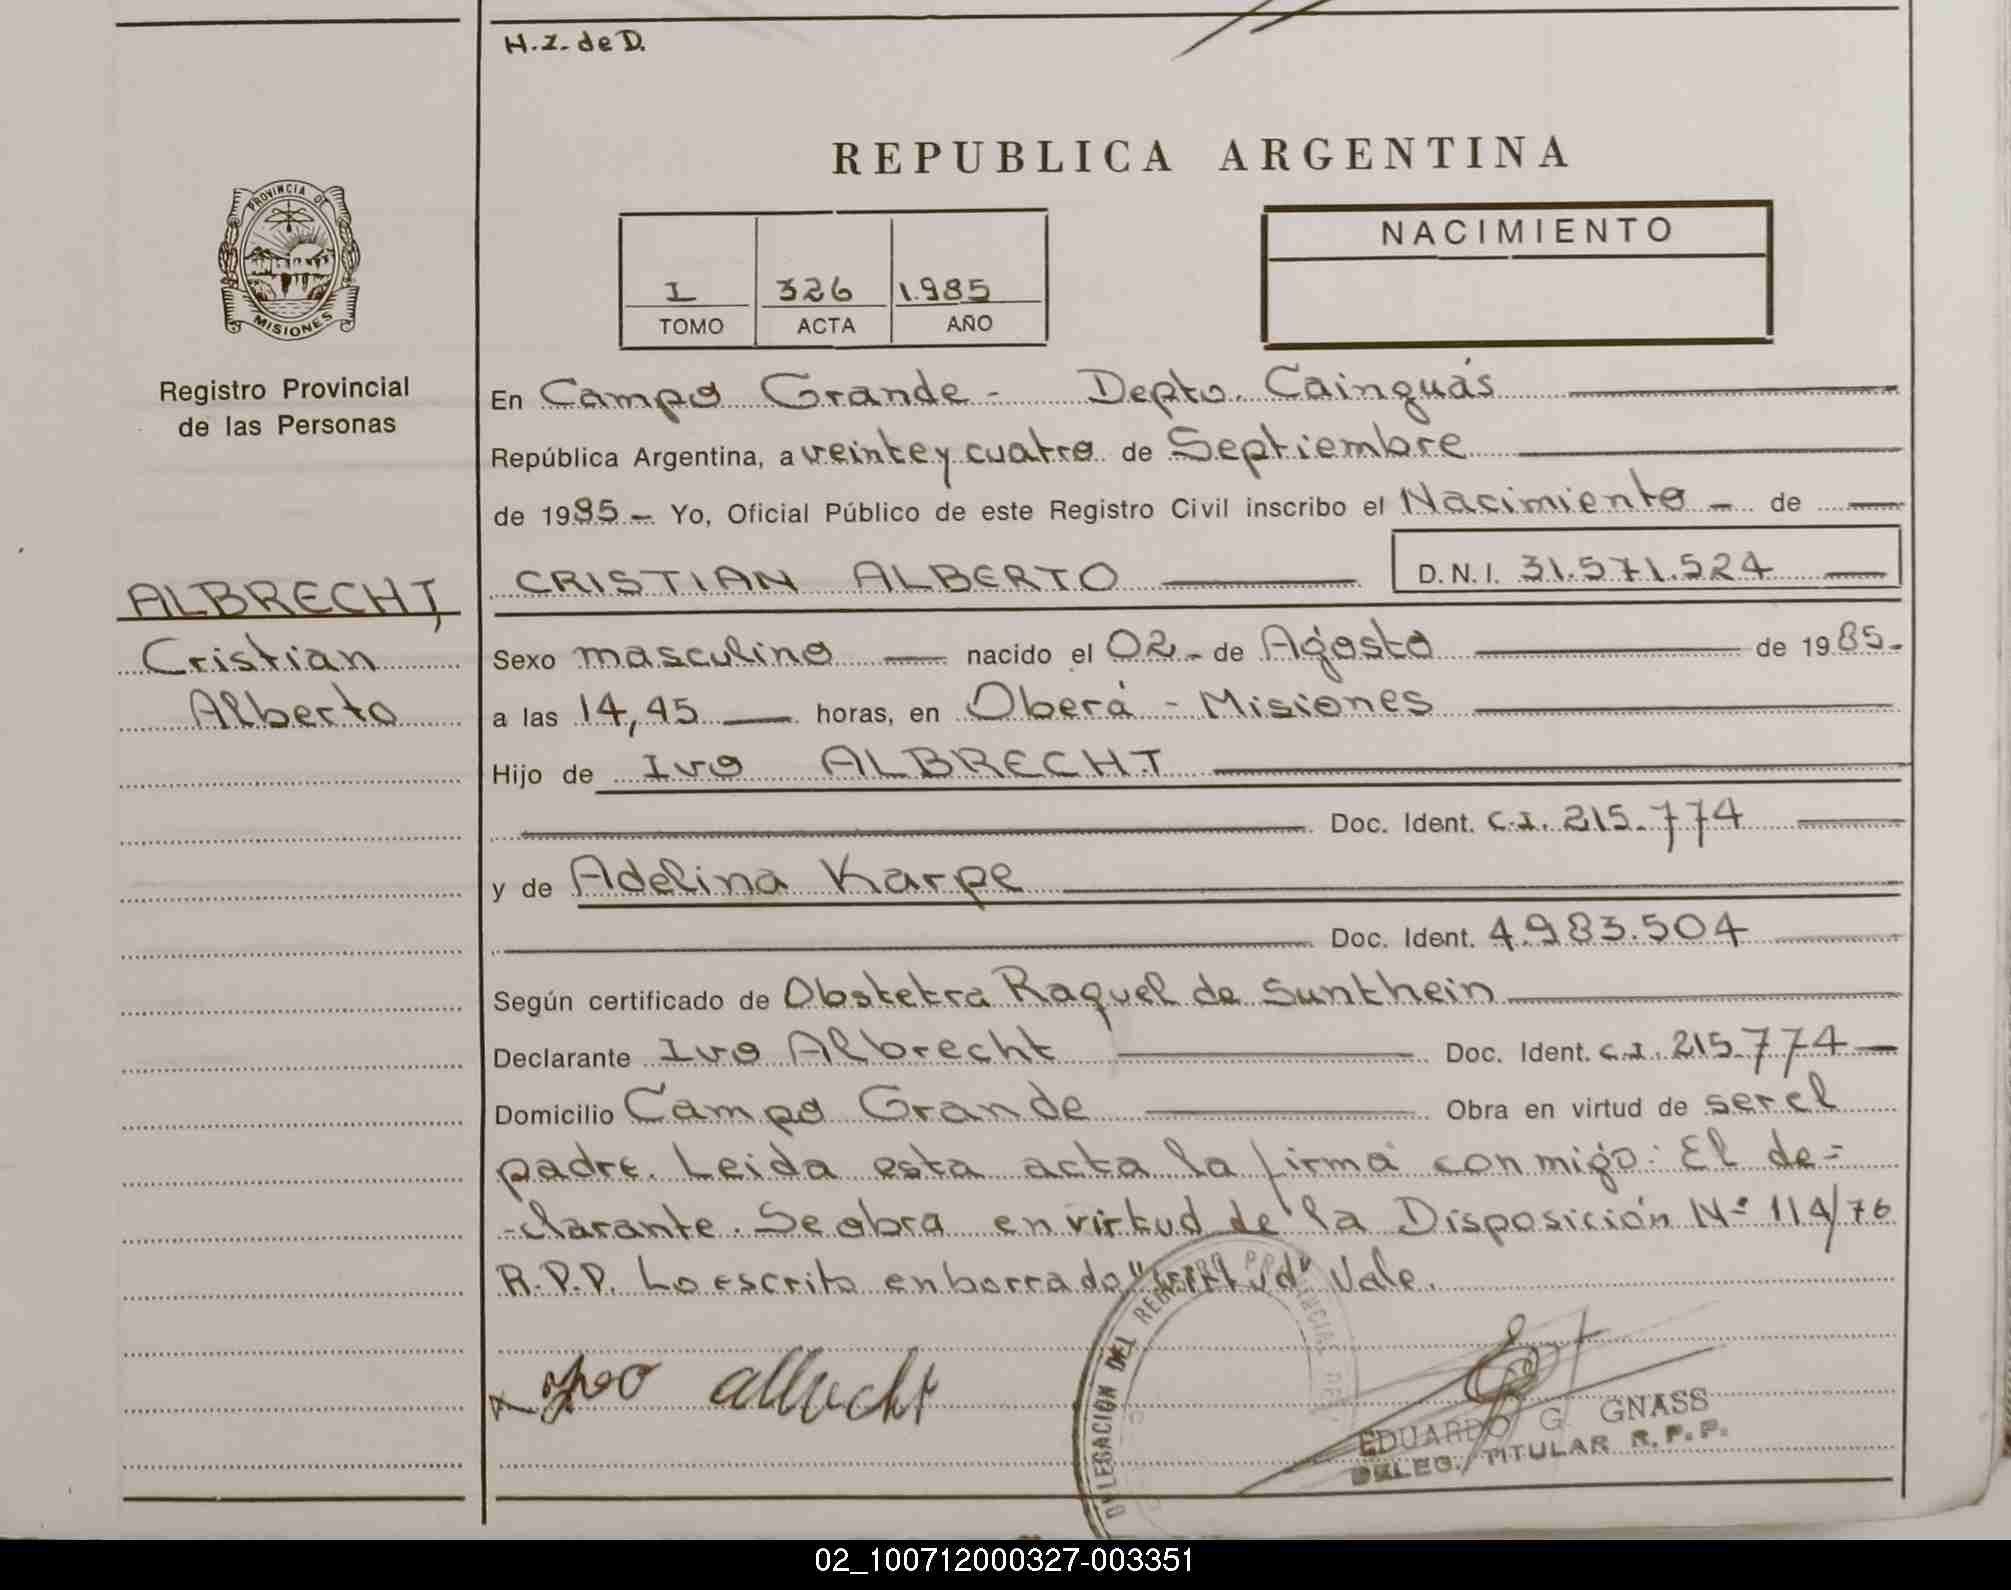 H.Z. de D.
REPUBLICA ARGENTINA
PROVINCIA DE
MISIONES
Registro Provincial
de las Personas
I 326 1.985
TOMO ACTA AÑO
NACIMIENTO
En Campo Grande - Depto. Cainguás
República Argentina, a veinte y cuatro de Septiembre
de 1985 - Yo, Oficial Público de este Registro Civil inscribo el Nacimiento - de
ALBRECHT,
Cristian
Alberto
CRISTIAN ALBERTO D.N.I. 31.571.524
Sexo masculino nacido el 02 - de Agosto de 1985.
a las 14,45 horas, en Oberá - Misiones
Hijo de Ivo ALBRECHT
Doc. Ident. C.I. 215.774
y de Adelina Karpe
Doc. Ident. 4.983.504
Según certificado de Obstetra Raquel de Sunthein
Declarante Ivo Albrecht Doc. Ident. C.I. 215.774
Domicilio Campo Grande Obra en virtud de ser el
padre. Leida esta acta la firma conmigo: El de-
-clarante. Se obra en virtud de la Disposición Nº 114/76
R.P.P. Lo escrito en borrado "virtud" Vale.
DELEGACION DEL REGISTRO PROVINCIAL
EDUARDO G. GNASS
DELEG. TITULAR R.P.P.
02_100712000327-003351